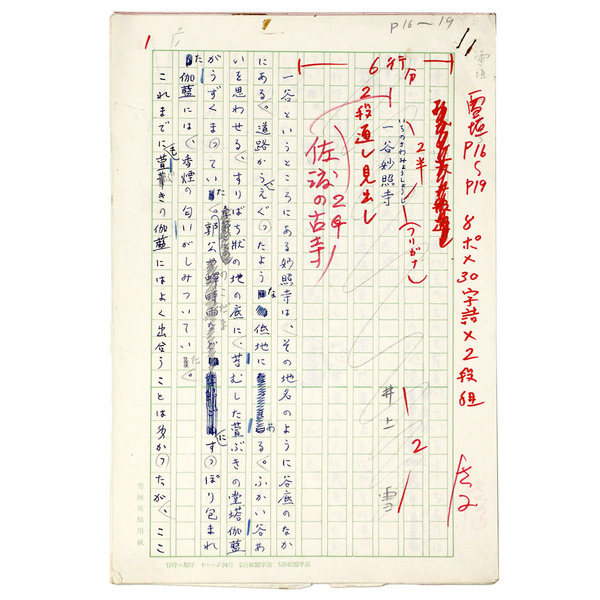 P16〜19
1
雪垣
雪垣 P16〜P19 8ポ×30字詰×2段組
6行分
2段通し見出し
いちのさわみょうしょうじ
一谷妙照寺
2半
(フリガナ)
佐渡の古寺
24
井上 雪
1
2
一谷というところにある妙照寺は、その地名のように谷底のなか
にある。道路からえぐったような低地にある。ふかい谷あ
いを思わせる、すりばち状の地の底に、苔むした萱ぶきの堂塔伽藍
がうずくまっていた。郭公や蝉時雨などがすっぽり包まれた
伽藍には、香煙の匂いがしみついていた。
これまでに萱葺きの伽藍にはよく出合うことは多かったが、ここ
雪垣原稿用紙